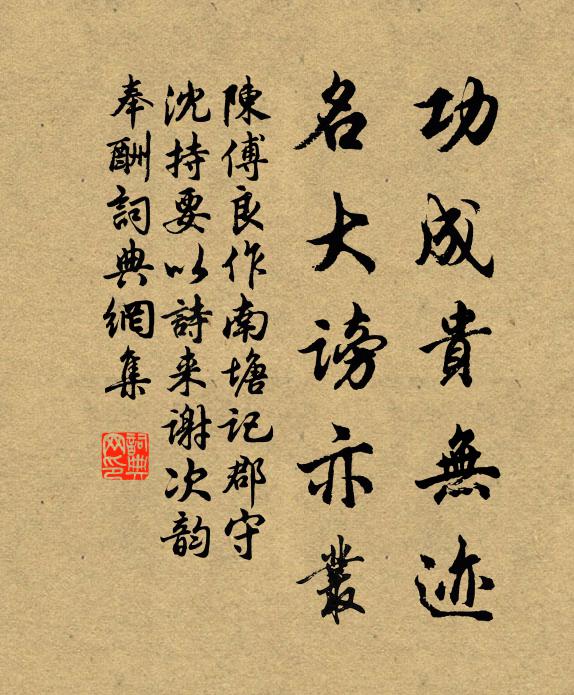 功成貴無迹
名大謗亦叢
陳傅良作南塘記郡守
沈持要以詩来謝次韵
奉酬詞典網集
詞典网印